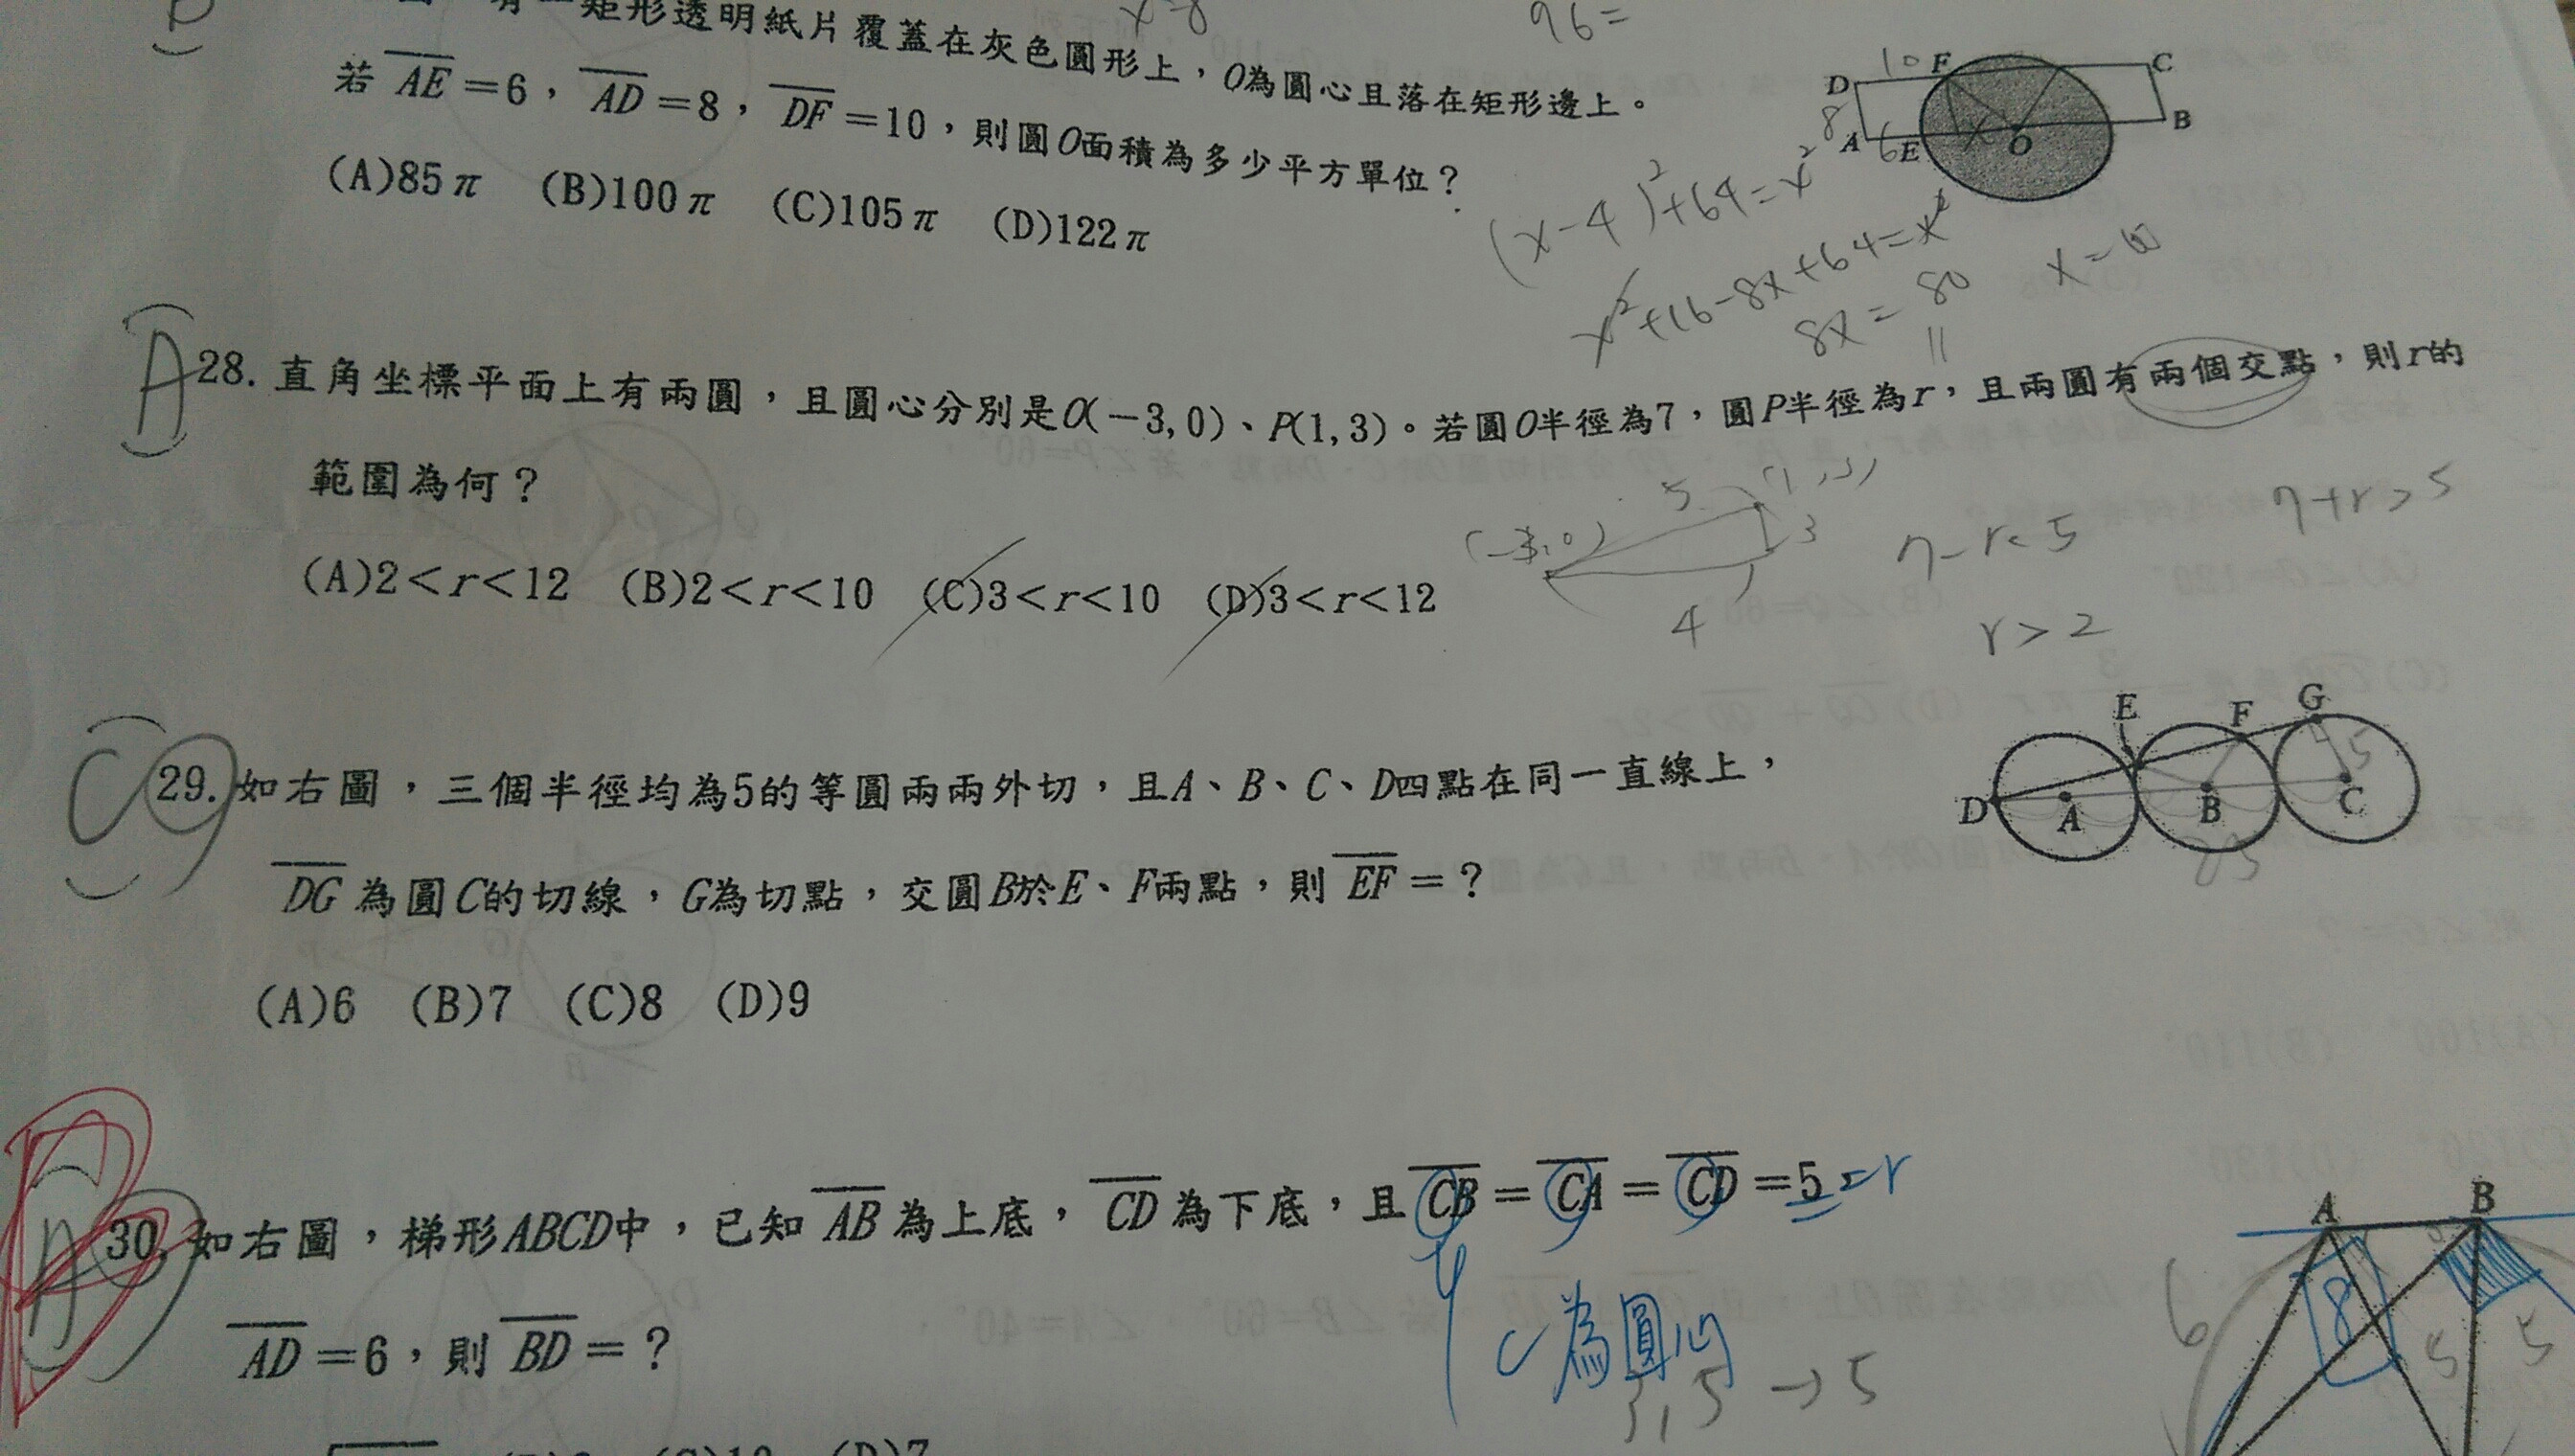 B
有一矩形透明紙片覆蓋在灰色圓形上，O為圓心且落在矩形邊上。
若AE=6，AD=8，DF=10，則圓O面積為多少平方單位？
(A)85π (B)100π (C)105π (D)122π
96=
D 10 F C
8
A 6 E X O B
(x-4)²+64=x²
x²+16-8x+64=x²
8x=80 x=10
A
28. 直角坐標平面上有兩圓，且圓心分別是O(-3,0)、P(1,3)。若圓O半徑為7，圓P半徑為r，且兩圓有兩個交點，則r的
範圍為何？
(A)2<r<12 (B)2<r<10 (C)3<r<10 (D)3<r<12
(-3,0) 5 (1,3) 3
4
7-r<5 7+r>5
r>2
C
29. 如右圖，三個半徑均為5的等圓兩兩外切，且A、B、C、D四點在同一直線上，
DG為圓C的切線，G為切點，交圓B於E、F兩點，則EF=？
(A)6 (B)7 (C)8 (D)9
E F G
5
D A B C
25
30. 如右圖，梯形ABCD中，已知AB為上底，CD為下底，且CB=CA=CD=5=r
AD=6，則BD=？
C為圓心
→5
A B
6 8 5 5
(D)7